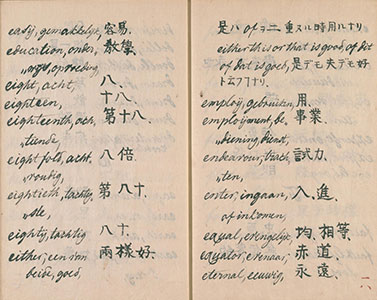 easy, gemakkelyk, 容易.
education, onder, 教學.
eight, acht, 八.
eighteen, 十八.
eighteenth, ach, 第十八.
tiende,
eight fold, acht 八倍.
voudig,
eightieth, tachtig, 第八十.
ste,
eighty, tachtig 八十.
either, een van 兩樣好.
beide, goed,
是ハ of ヲ二重ヌル時用ルナリ
either this or that is good, of dit
of dat is goed, 是デモ夫デモ好
ト云フナリ.
employ, gebruiken, 用.
employment, be, 事業.
diening, dienst,
endeavour, trach, 試力.
ten,
enter, ingaan, 入.進.
of inkomen,
equal, 均.相等.
equator, evenaar, 赤道
eternal, eeuwig, 永遠.
一八